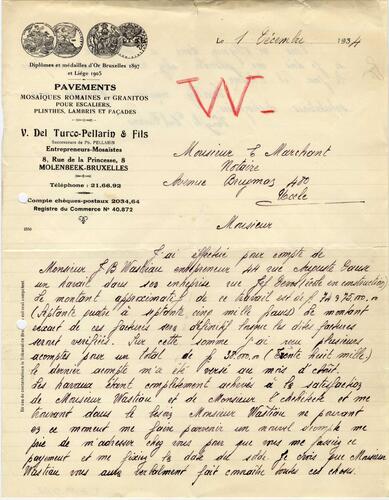 Le 1 Décembre 1934
Diplômes et médailles d'Or Bruxelles 1897
et Liége 1905
PAVEMENTS
MOSAÏQUES ROMAINES et GRANITOS
POUR ESCALIERS,
PLINTHES, LAMBRIS ET FAÇADES
V. Del Turco-Pellarin & Fils
Successeurs de Ph. PELLARIN
Entrepreneurs-Mosaïstes
8, Rue de la Princesse, 8
MOLENBEEK-BRUXELLES
Téléphone : 21.66.92
Compte chèques-postaux 2034,64
Registre du Commerce Nº 40.872
W-
Monsieur E Marchant
Notaire
Avenue Brugman 480
Uccle
Monsieur
J'ai effectué pour compte de
Monsieur J B Wastiau entrepreneur 44 rue Auguste
un travail dans son entreprise rue (en construction)
Le montant approximatif de ce travail est de f 74 à 75.000,00
(septante quatre à septante cinq mille francs) le montant
exact de ces factures sera définitif lorsque les dites factures
seront vérifiées. Sur cette somme j'ai reçu plusieurs
acomptes pour un total de f 38.000,00 (trente huit mille)
le dernier acompte m'a été versé au mois d'août.
Les travaux étant complètement achevés à la satisfaction
de Monsieur Wastiau et de Monsieur l'architecte et me
trouvant dans le besoin Monsieur Wastiau ne pouvant
en ce moment me faire parvenir un nouvel acompte me
prie de m'adresser chez vous pour que vous me fassiez ce
payement et me fixiez la date du solde. Je crois que Monsieur
Wastiau vous aura verbalement fait connaître toutes ces choses.